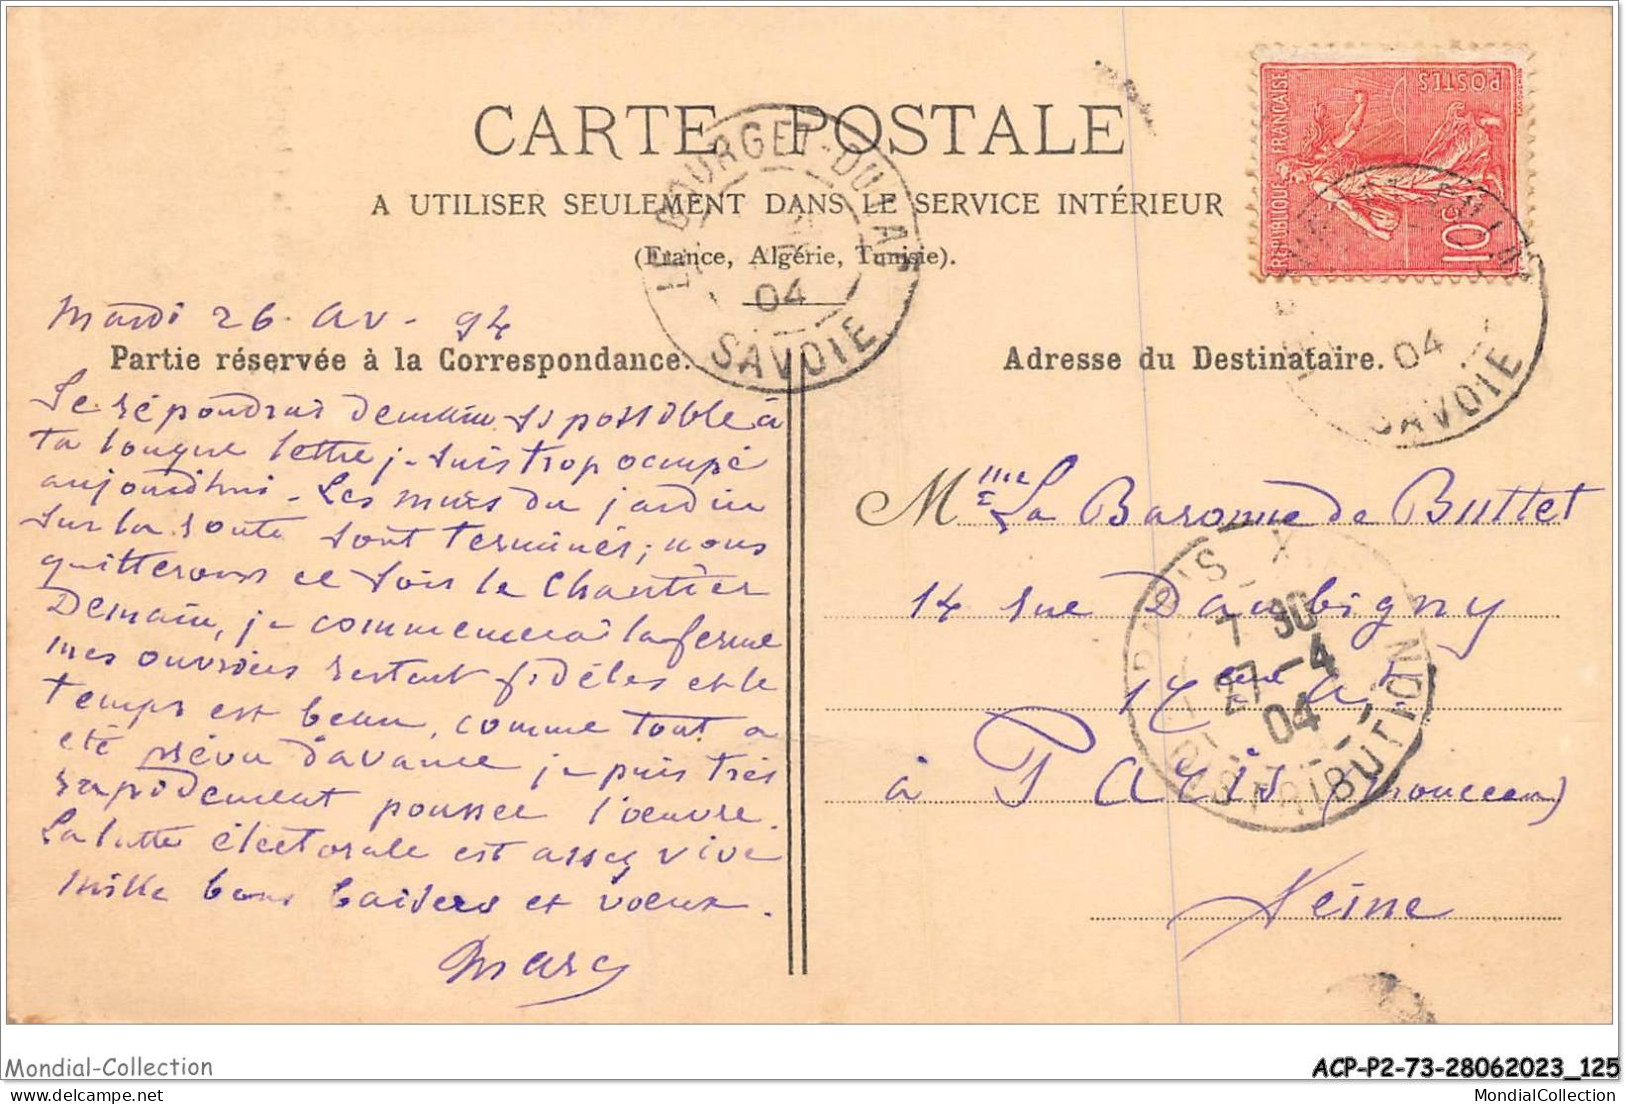 CARTE POSTALE
A UTILISER SEULEMENT DANS LE SERVICE INTÉRIEUR
(France, Algérie, Tunisie).
RÉPUBLIQUE FRANÇAISE
POSTES
10c
LE BOURGET-DU-LAC
04
SAVOIE
04
SAVOIE
Mardi 26. av - 94
Partie réservée à la Correspondance.
Je répondrai demain si possible à
ta longue lettre, je suis trop occupé
aujourdhui - Les murs du jardin
sur la route sont terminés; nous
quitterons ce soir le chantier
Demain, je commencerai la ferme
mes ouvriers restent fidèles et le
temps est beau, comme tout a
été prévu d'avance je puis très
rapidement pousser l'oeuvre.
La lutte électorale est assez vive
Mille bons baisers et voeux.
Marc
Adresse du Destinataire.
Mme La Baronne de Buttet
14 rue Daubigny
17eme art
à Paris (Monceau)
Seine
PARIS XVII
7 30
27-4
04
DISTRIBUTION
Mondial-Collection
ACP-P2-73-28062023_125
MondialCollection
MondialCollection